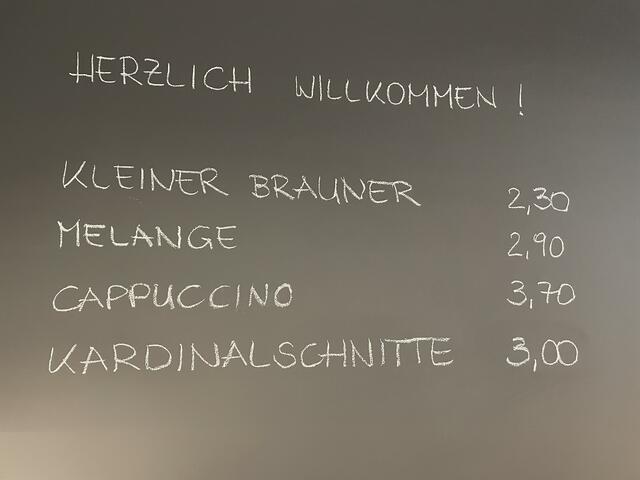 HERZLICH WILLKOMMEN !
KLEINER BRAUNER 2,30
MELANGE 2,90
CAPPUCCINO 3,70
KARDINALSCHNITTE 3,00